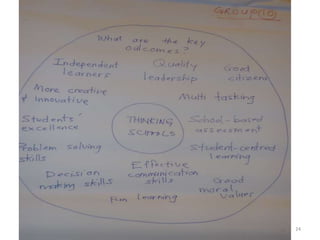 GROUP(10)
What are the key
outcomes?
Independent
learners
Quality
leadership
Good
citizens
More creative
& innovative
Multi tasking
Students'
excellence
THINKING
SCHOOLS
School-based
assessment
Problem solving
skills
Student-centred
learning
Decision
making skills
Effective
communication
skills
Good
moral
values
Fun learning
24